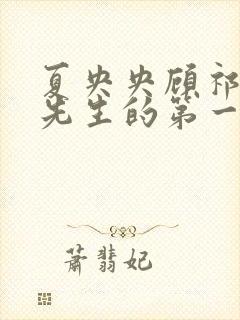 夏央央顾祁
先生的第一
萧翡妃